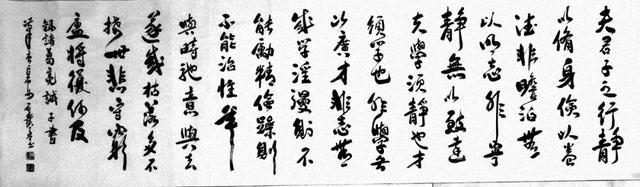 夫君子之行靜
以脩身儉以養
德非澹泊無
以明志非寧
靜無以致遠
夫學須靜也才
須學也非學無
以廣才非志無
成學淫漫則不
能勵精險躁則
不能治性年
與時馳意與去
遂成枯落多不
接世悲守窮
廬將復何及
錄諸葛亮誡子書